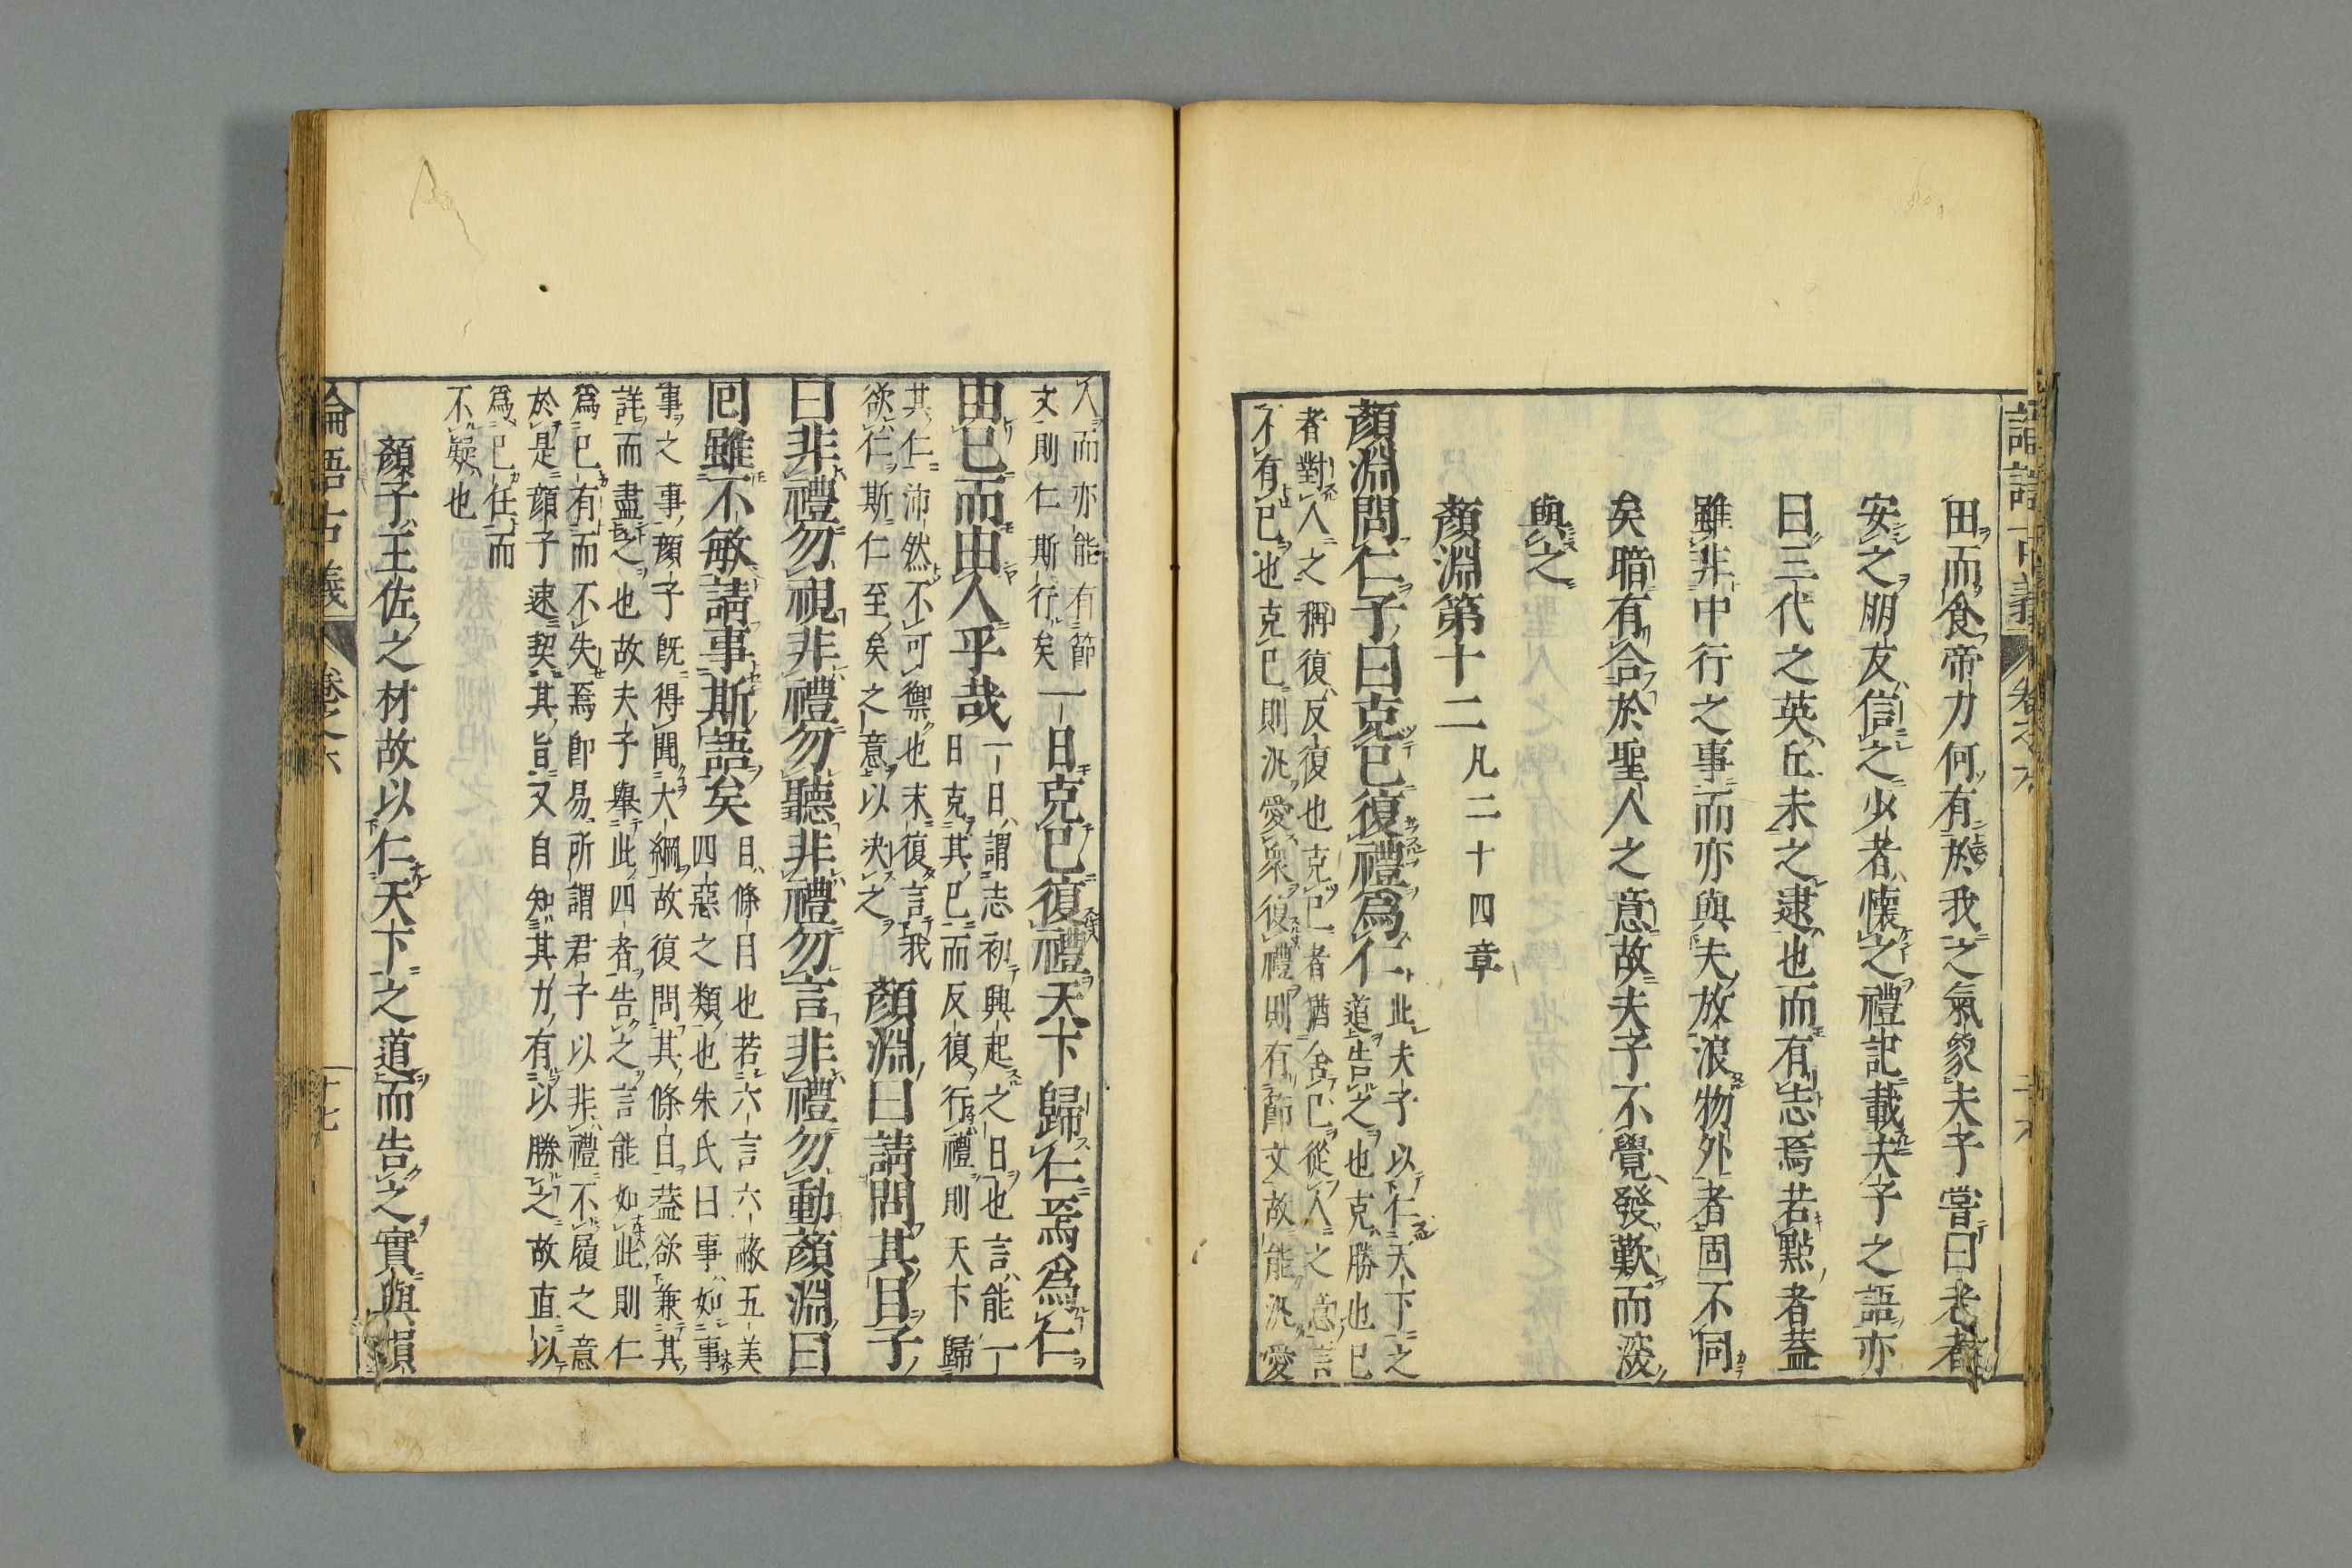 田而食帝力何有於我之氣象夫子嘗曰老者
安之朋友信之少者懷之禮記載夫子之語亦
曰三代之英丘未之逮也而有志焉若點者蓋
雖非中行之事而亦與夫放浪物外者固不同
矣暗有合於聖人之意故夫子不覺發歎而深
與之
顏淵第十二凡二十四章
顏淵問仁子曰克己復禮爲仁此夫子以仁天下之
道告之也克勝也己
者對人之稱復反復也克己者猶舍己從人之意言
不有己也克己則汎愛衆復禮則有節文故能汎愛
人而亦能有節
文則仁斯行矣一日克己復禮天下歸仁焉爲仁
由己而由人乎哉一日謂志初興起之日也言能一
日克其己而反復行禮則天下歸
其仁沛然不可禦也末復言我
欲仁斯仁至矣之意以決之顏淵曰請問其目子
曰非禮勿視非禮勿聽非禮勿言非禮勿動顏淵曰
回雖不敏請事斯語矣目條目也若六言六蔽五美
四惡之類也朱氏曰事如事
事之事顏子既得聞大綱故復問其條目蓋欲兼其
詳而盡之也故夫子舉此四者告之言能如此則仁
爲己有而不失焉卽易所謂君子以非禮不履之意
於是顏子速契其旨又自知其力有以勝之故直以
爲己任而
不疑也
顏子王佐之材故以仁天下之道而告之實與
論語古義 卷之六 十七